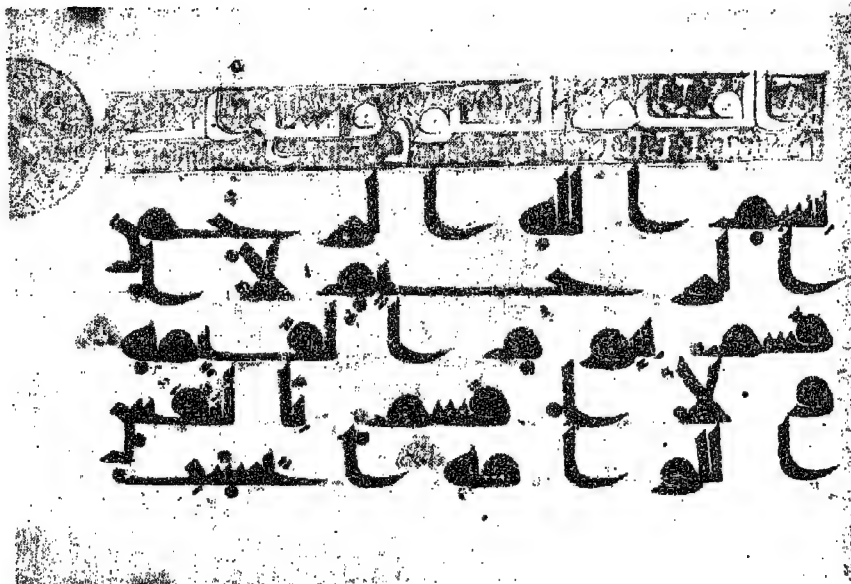 القيمه
بسم الله الرحمن
الرحيم لا ا
قسم بيوم القيمه
و لا اقسم بالنفس
اللوامه ايحسب